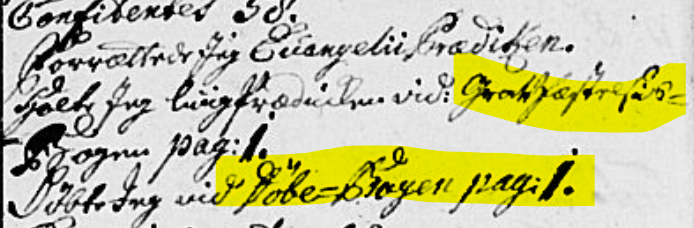 Confitentes 38.
Forrættede Jeg Euangelii Prædiken.
Holte Jeg liigprædicken vid: Graffæstelsis=
Bogen pag: 1.
Döbte Jeg vid Döbe=Bogen pag: 1.